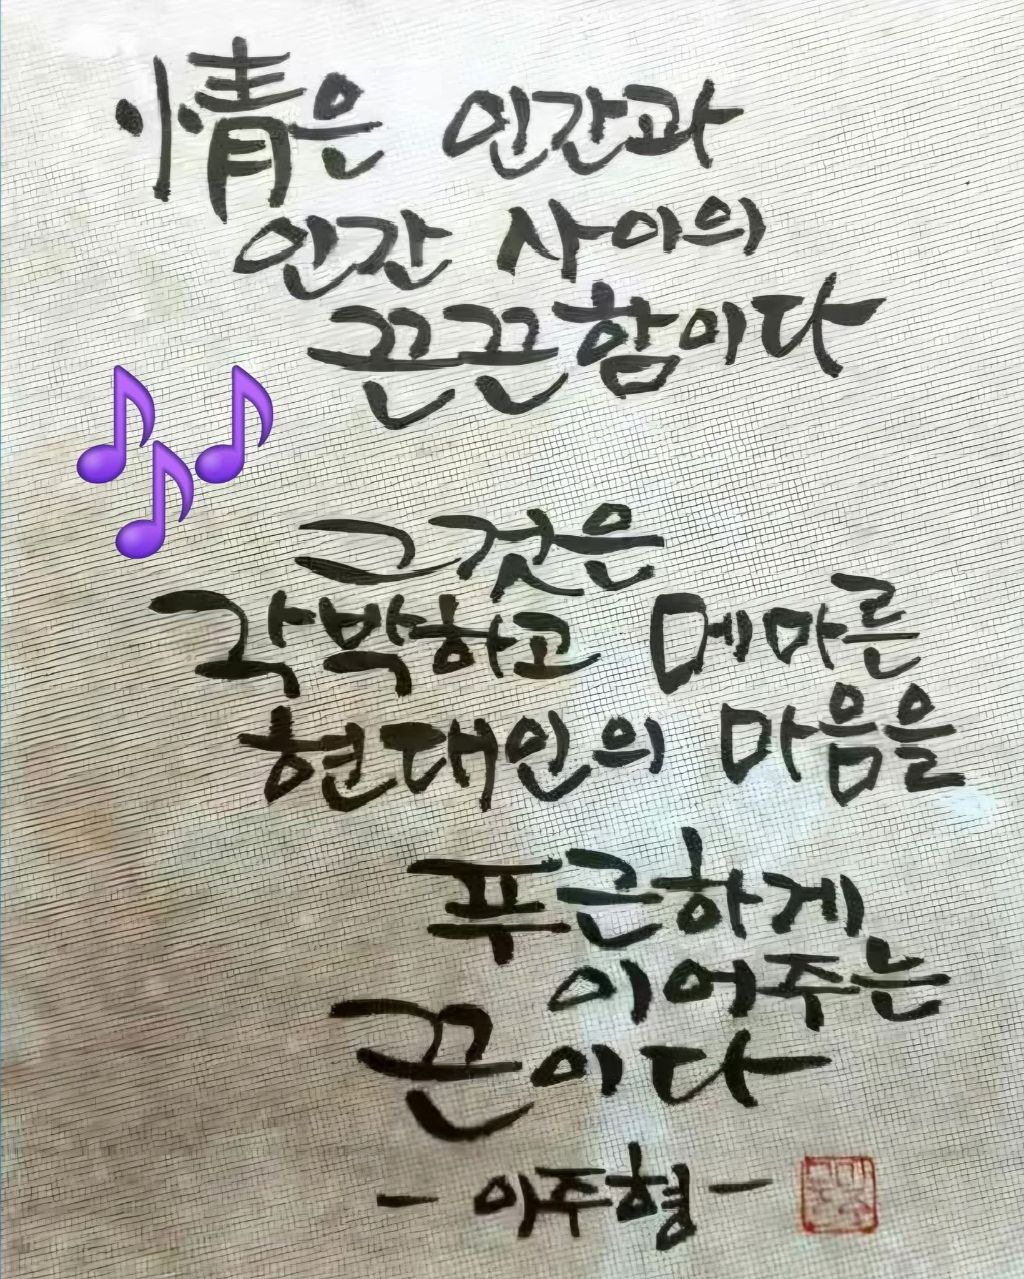 情은 인간과
인간 사이의
끈끈함이다
그것은
각박하고 메마른
현대인의 마음을
푸근하게
이어주는
끈이다
- 이주형 -